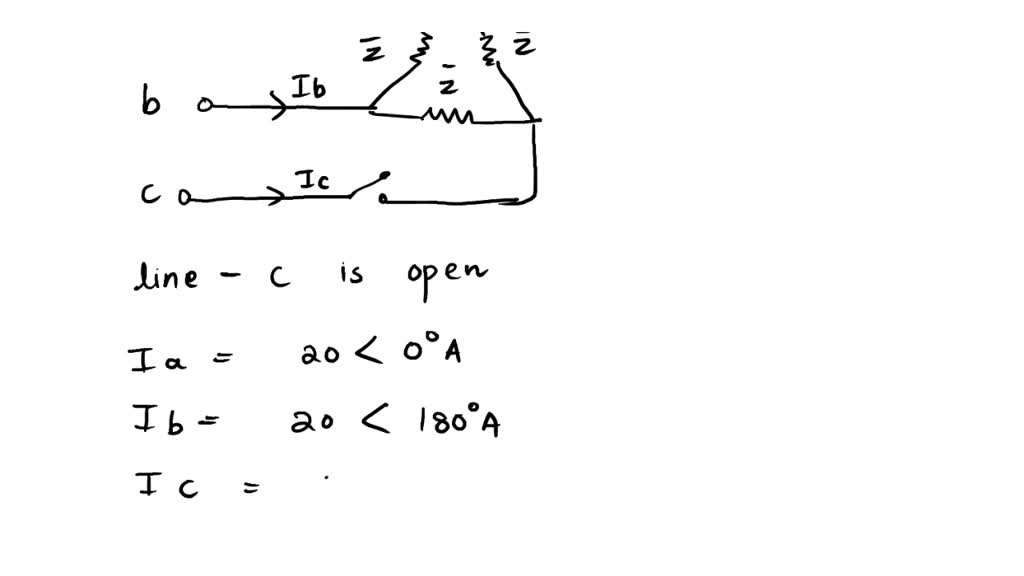 z̄ z̄
z̄
b Ib
c Ic
line - c is open
Ia = 20 < 0° A
Ib = 20 < 180° A
Ic =